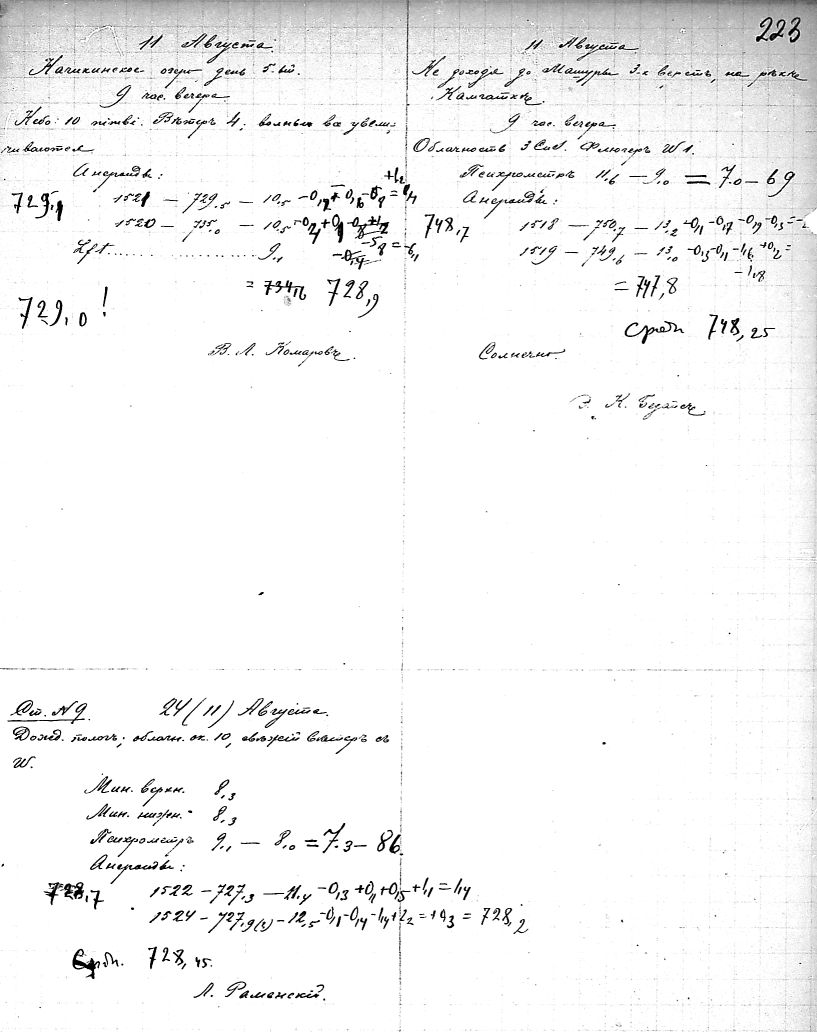 223
11 Августа
Начикинское озеро день 5.
9 час. вечера.
Небо: 10 nimbi. Вѣтеръ 4; волны все увели-
чиваются
Анероиды:
729,1 1521 — 729,5 — 10,5 -0,2
1520 — 735,0 — 10,5
Lft. 9,1
= 728,9
729,0!
В. Л. Комаровъ.
11 Августа
Не доходя до Машуры 3-х верстъ, на рѣкѣ
Камчаткѣ
9 час. вечера.
Облачность 3 CuN. Флюгеръ W 1.
Психрометръ 11,6 — 9,0 = 7.0 — 69
Анероиды:
748,7 1518 — 750,7 — 13,2 -0,1 -0,7 -0,9 -0,3 =
1519 — 749,6 — 13,0 -0,3 -0,1 -1,6 +0,2 =
-1,8
= 747,8
средн 748,25
Солнечно.
Э. К. Безайсъ
Ст. N 9. 24 (11) Августа.
Дожд. пологъ; облачн. ок. 10, свѣжій вѣтеръ съ
W.
Мин. верхн. 8,3
Мин. нижн. 8,3
Психрометръ 9,1 — 8,0 = 7.3 — 86.
Анероиды:
728,7 1522 — 727,3 — 11,4 -0,3 +0,1 +0,5 +1,1 = 1,4
1524 — 727,9(3) — 12,5 -0,1 -0,4 -1,4 +2,2 = +0,3 = 728,2
Средн. 728,45.
Л. Раменскій.